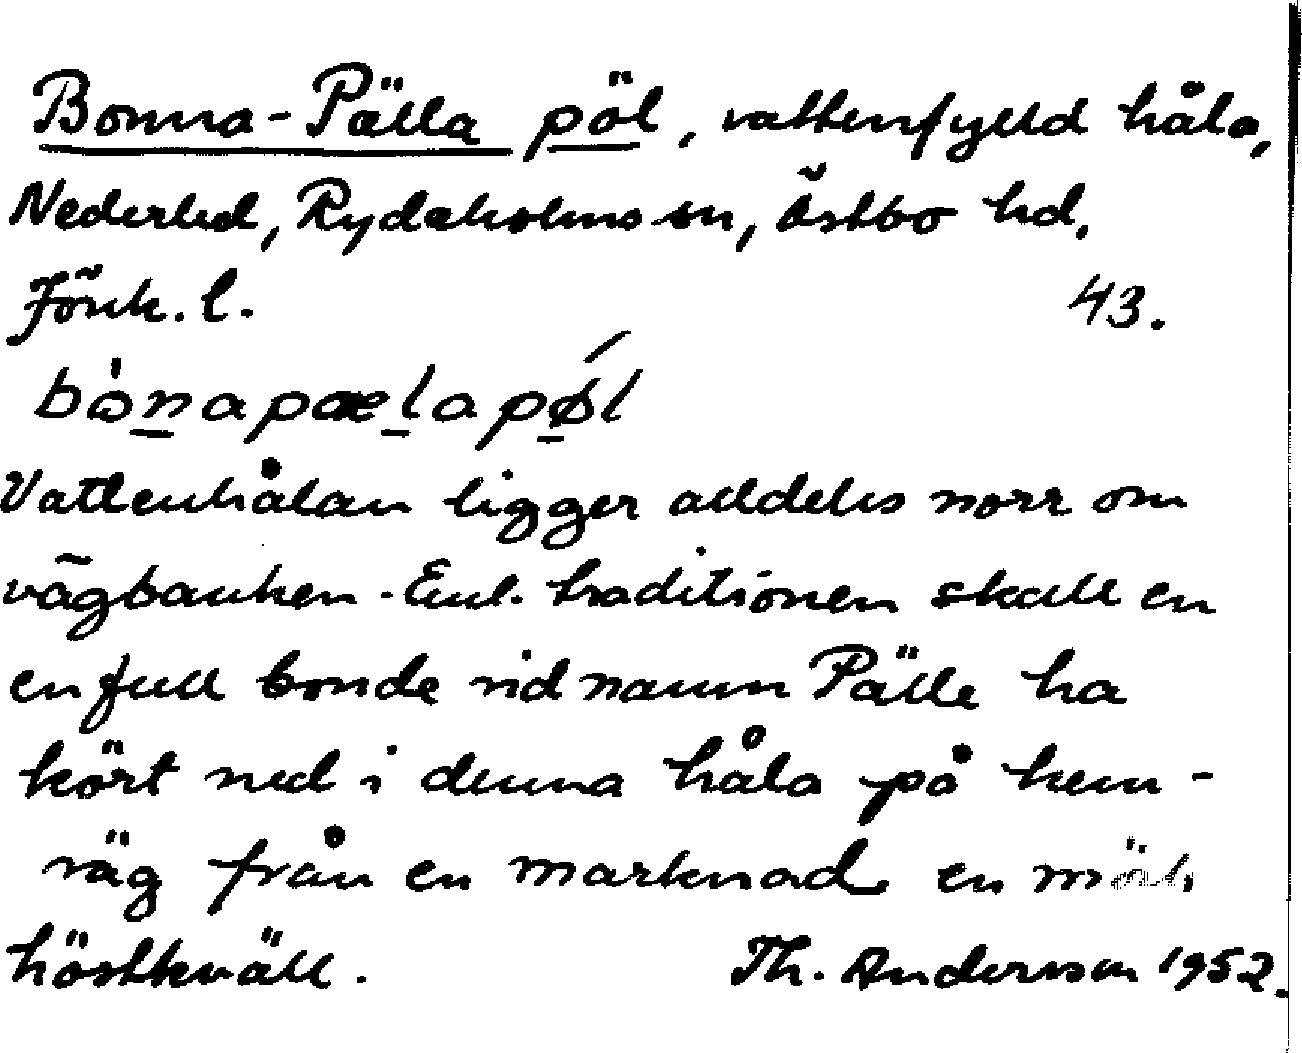 Bonna-Pälla pöl, vattenfylld håla,
Nederled, Rydaholms sn, Östbo hd,
Jönk. l. 43.
bònapælapǿl
Vattenhålan ligger alldeles norr om
vägbanken. Enl. traditionen skall en
en full bonde vid namn Pälle ha
kört ned i denna håla på hem-
väg från en marknad en mörk
höstkväll. Th. Andersson 1952.